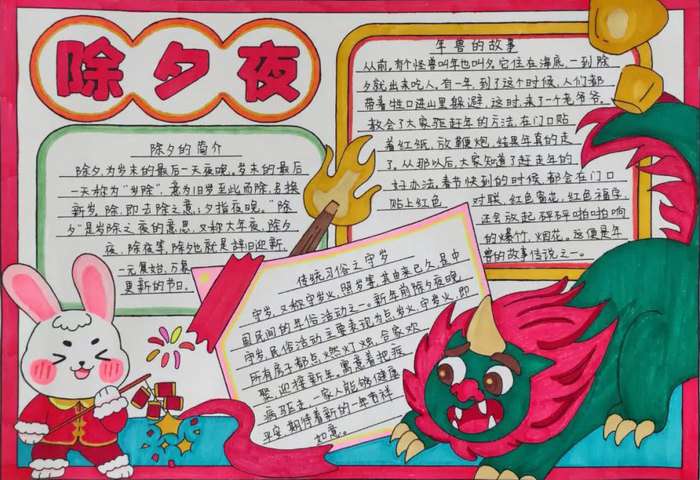 除夕夜
除夕的简介
除夕,为岁末的最后一天夜晚。岁末的最后
一天称为"岁除",意为旧岁至此而除,另换
新岁。除,即去除之意;夕指夜晚。"除
夕"是岁除之夜的意思,又称大年夜、除夕
夜、除夜等,除夕也就是辞旧迎新、
一元复始、万象
更新的节日。
年兽的故事
从前,有个怪兽叫年也叫夕,它住在海底,一到除
夕就出来吃人,有一年,到了这个时候,人们都
带着牲口进山里躲避,这时,来了一个老爷爷,
教会了大家驱赶年的方法,在门口贴
着红纸,放鞭炮,结果年真的走
了。从那以后,大家知道了赶走年的
好办法,春节快到的时候,都会在门口
贴上红色
对联,红色窗花,红色福字,
还会放起砰砰啪啪响
的爆竹,烟花。这便是年
兽的故事传说之一。
传统习俗之守岁
守岁,又称守岁火、照岁等,其由来已久,是中
国民间的年俗活动之一。新年前除夕夜晚
守岁,民俗活动主要表现为点岁火、守岁火,即
所有房子都点燃灯烛,合家欢
聚,迎接新年,寓意着把疾
病驱走,一家人能够健康
平安,期待着新的一年吉祥
如意。